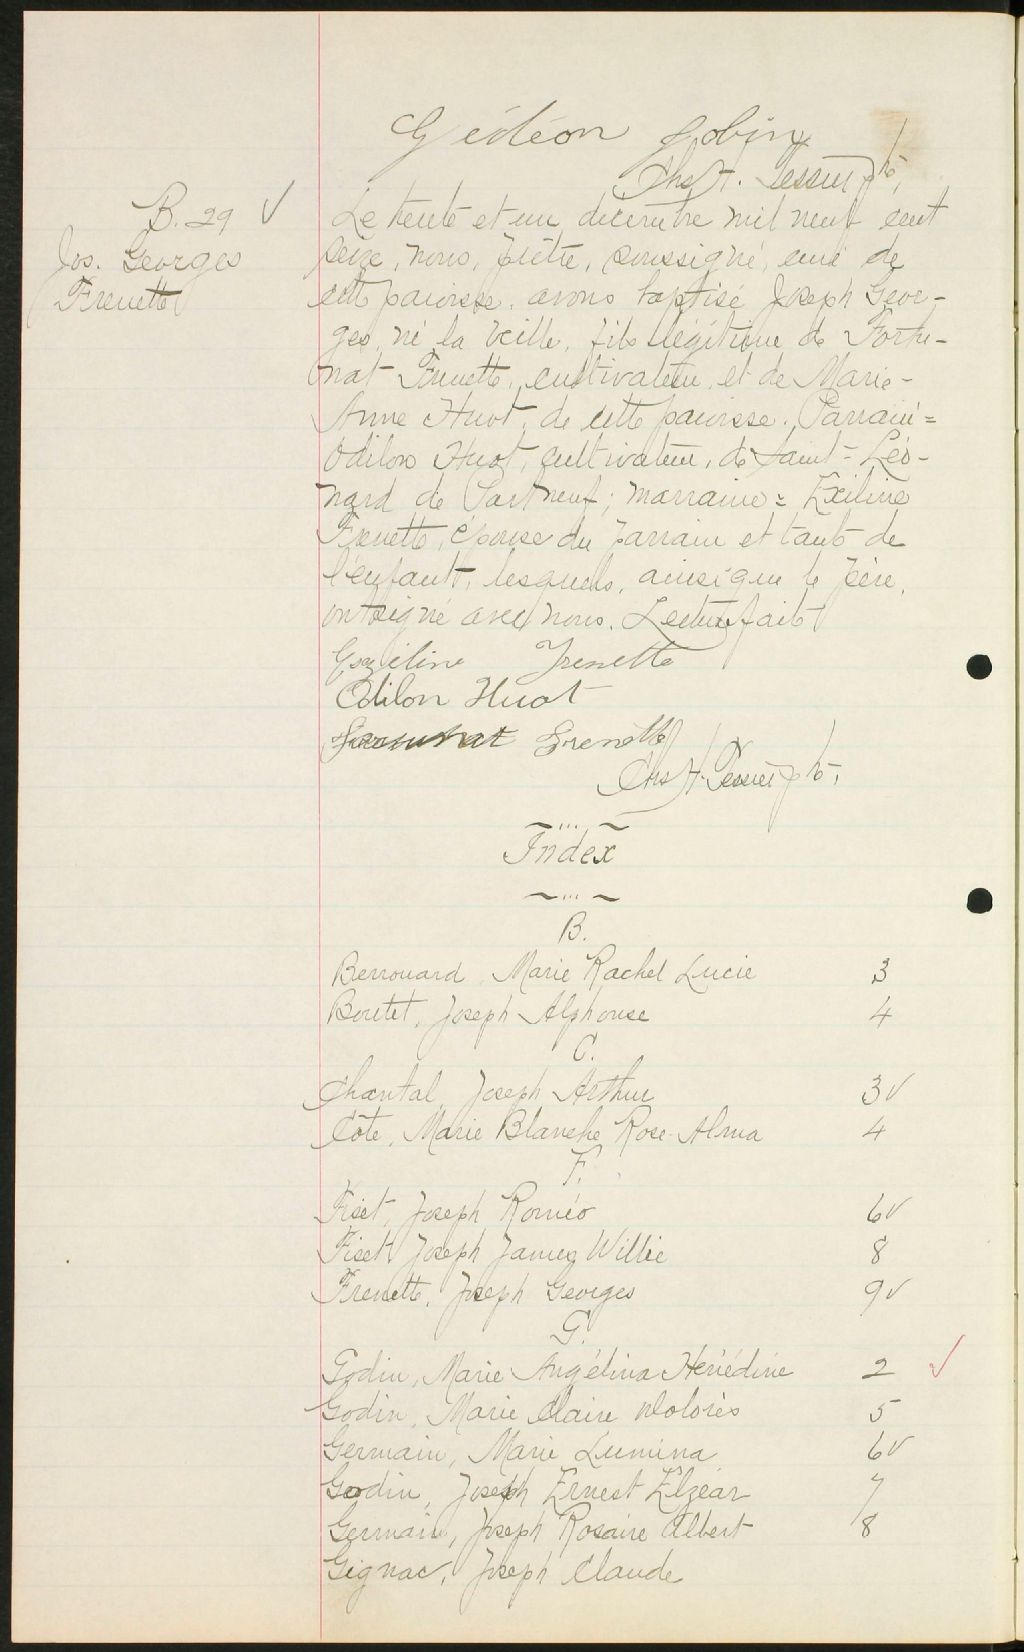 Gédéon Gobin
Chs H. Tessier ptre,
B. 29 √
Jos. Georges
Frenette
Le trente et un décembre mil neuf cent
seize, nous, prêtre, soussigné, curé de
cette paroisse, avons baptisé Joseph Geor-
ges, né la veille, fils légitime de Fortu-
nat Frenette, cultivateur, et de Marie-
Anne Huot, de cette paroisse. Parrain =
Odilon Huot, cultivateur, de Saint-Léo-
nard de Portneuf; marraine = Exiline
Frenette, épouse du parrain et tante de
l'enfant, lesquels, ainsi que le père,
ont signé avec nous. Lecture faite
Frenette
Odilon Huot
Fortunat Frenette
Chs H. Tessier ptre,
Index
B.
Berrouard, Marie Rachel Lucie 3
Boutet, Joseph Alphonse 4
C.
Chantal, Joseph Arthur 3√
Côté, Marie Blanche Rose-Alma 4
F.
Fiset, Joseph Roméo 6√
Fiset, Joseph James Willie 8
Frenette, Joseph Georges 9√
G.
Godin, Marie Angélina Hénédine 2 √
Godin, Marie Claire Dolorès 5
Germain, Marie Lumina 6√
Godin, Joseph Ernest Elzéar 7
Germain, Joseph Rosaire Albert 8
Gignac, Joseph Claude